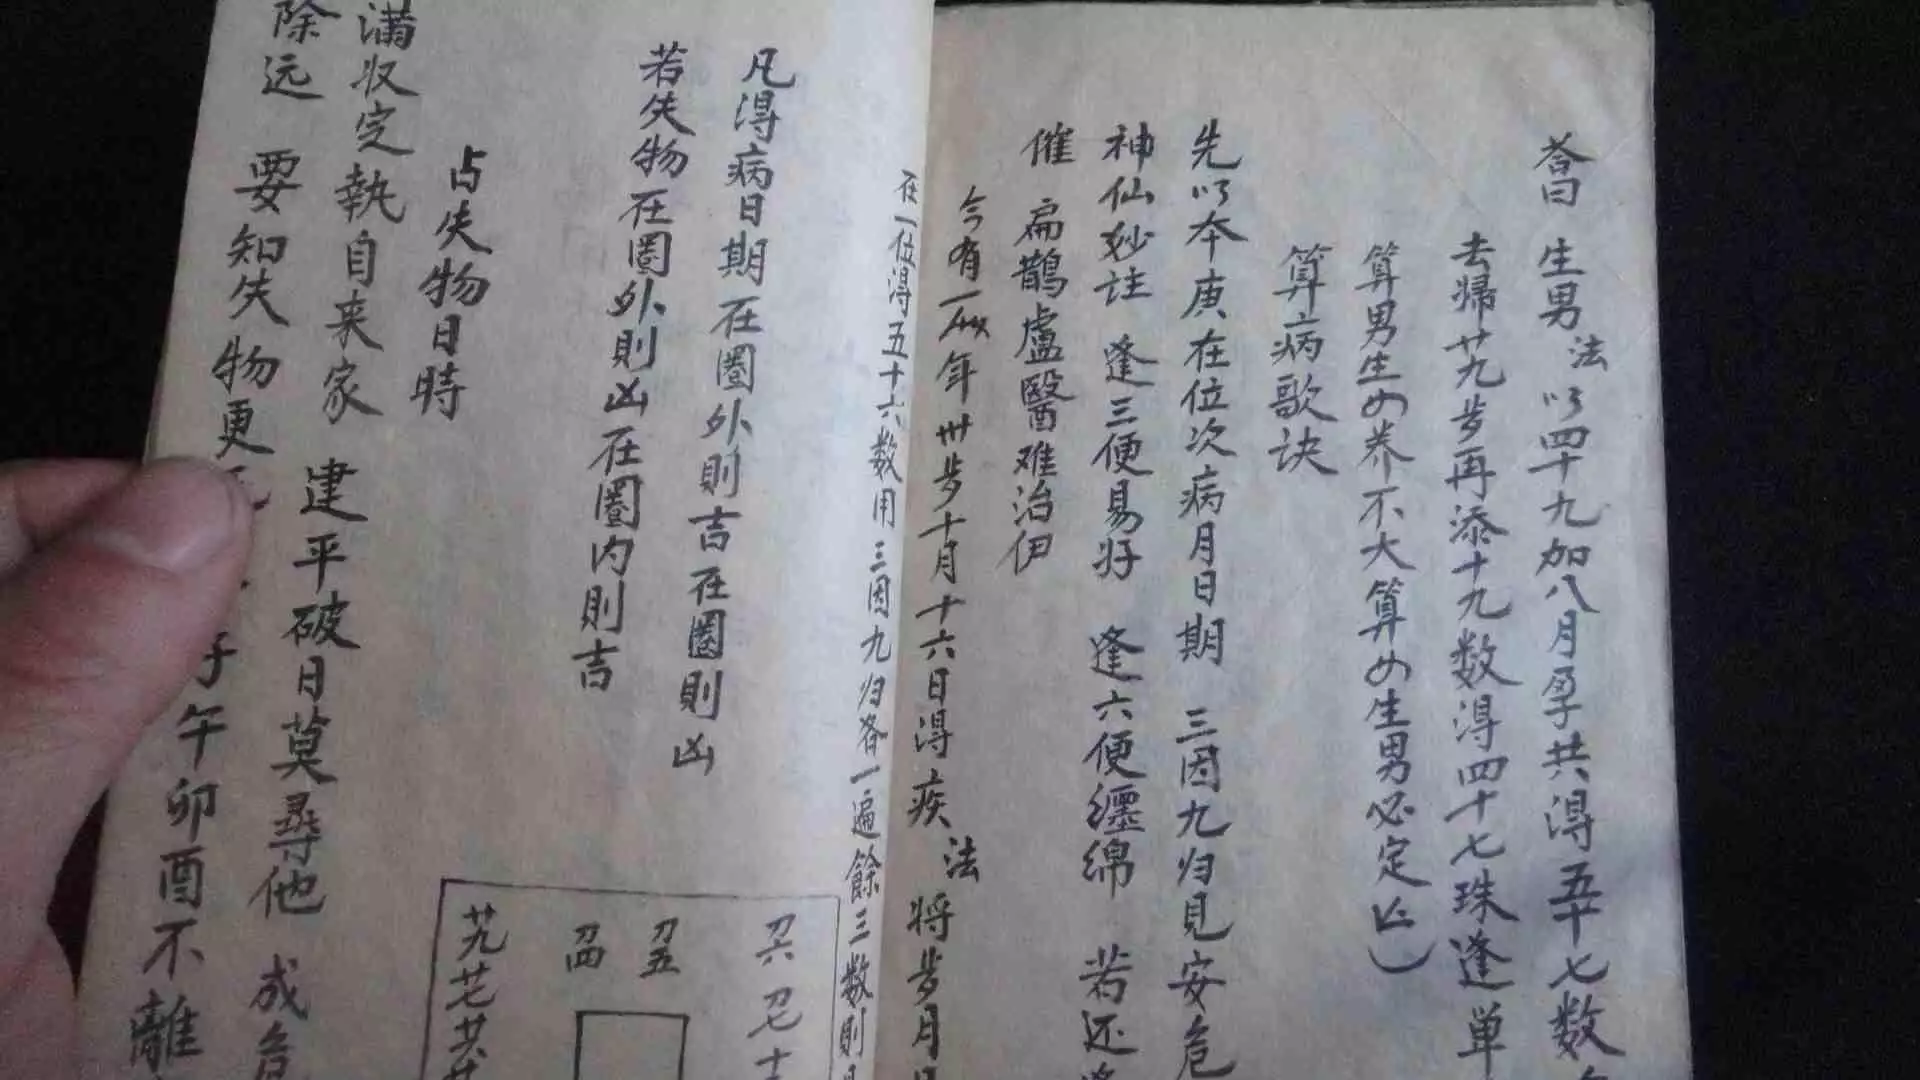 荅曰 生男 法 以四十九加八月孕共得五十七数
去歸廿九岁再添十九数得四十七珠逢单
算男生女养不大算女生男必定
算病歌诀
先以本庚在位次病月日期 三因九归見安危
神仙妙诀 逢三便易好 逢六便纒绵 若还
催 扁鹊盧醫难治伊
今有一人 年卅岁十月十六日得疾 法 将岁月日
在一位得五十六数用三因九归各一遍餘三数則
凡得病日期在圈外則吉在圈則凶
若失物在圈外則凶在圈内則吉
占失物日時
滿收定執自来家 建平破日莫尋他 成危
除远 要知失物更 午卯酉不離
刀六 刀七
刀五
刀四
廿九 廿七